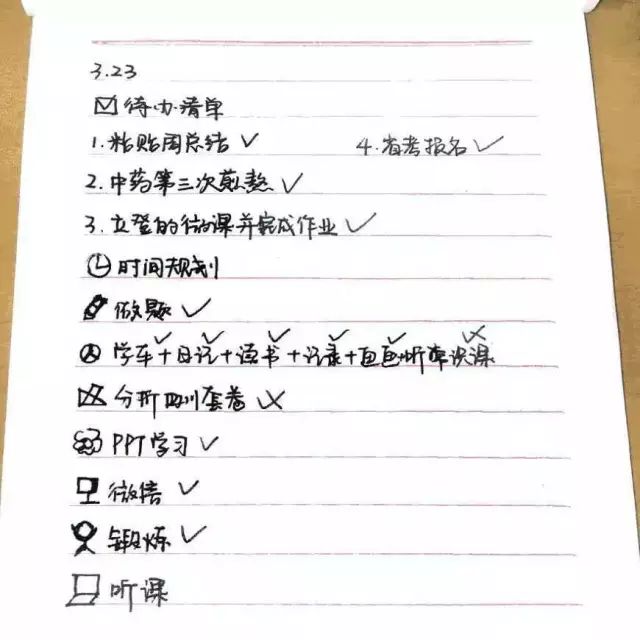 3.23
☑待办清单
1.粘贴周总结✓ 4.省考报名✓
2.中药第三次煎熬✓
3.立登的微课并完成作业✓
时间规划
做题✓
学车+日记+读书+记录+听课
分析四川套卷✗
PPT学习✓
微信✓
锻炼✓
听课